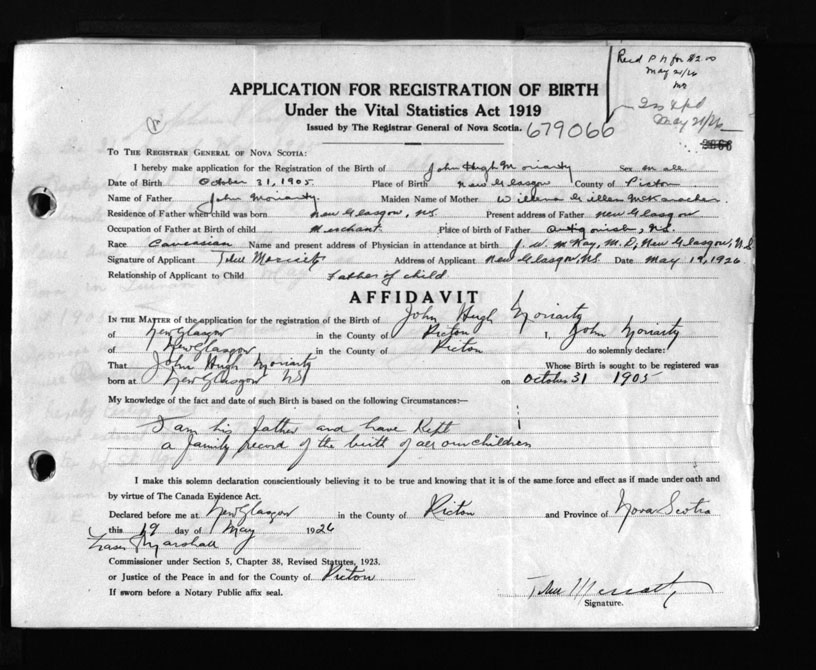 Recd P N for $2.00
May 21/26
May 21/26
APPLICATION FOR REGISTRATION OF BIRTH
Under the Vital Statistics Act 1919
Issued by The Registrar General of Nova Scotia.
679066
To The Registrar General of Nova Scotia:
I hereby make application for the Registration of the Birth of John Hugh Moriarty Sex male.
Date of Birth October 31, 1905. Place of Birth New Glasgow County of Pictou
Name of Father John Moriarty Maiden Name of Mother
Residence of Father when child was born New Glasgow, N.S. Present address of Father New Glasgow
Occupation of Father at Birth of child Merchant. Place of birth of Father Antigonish, N.S.
Race Caucasian Name and present address of Physician in attendance at birth J. W. McKay, M.D, New Glasgow, N.S
Signature of Applicant Address of Applicant New Glasgow, N.S. Date May 19, 1926
Relationship of Applicant to Child Father of child.
AFFIDAVIT
In the Matter of the application for the registration of the Birth of John Hugh Moriarty
of New Glasgow in the County of Pictou I, John Moriarty
of New Glasgow in the County of Pictou do solemnly declare:
That John Hugh Moriarty Whose Birth is sought to be registered was
born at New Glasgow NS on October 31 1905
My knowledge of the fact and date of such Birth is based on the following Circumstances:—
I am his father and have Kept
a family record of the birth of all our children
I make this solemn declaration conscientiously believing it to be true and knowing that it is of the same force and effect as if made under oath and
by virtue of The Canada Evidence Act.
Declared before me at New Glasgow in the County of Pictou and Province of Nova Scotia
this 19 day of May 1926
Fraser Marshall
Commissioner under Section 5, Chapter 38, Revised Statutes, 1923.
or Justice of the Peace in and for the County of Pictou
If sworn before a Notary Public affix seal.
Signature.